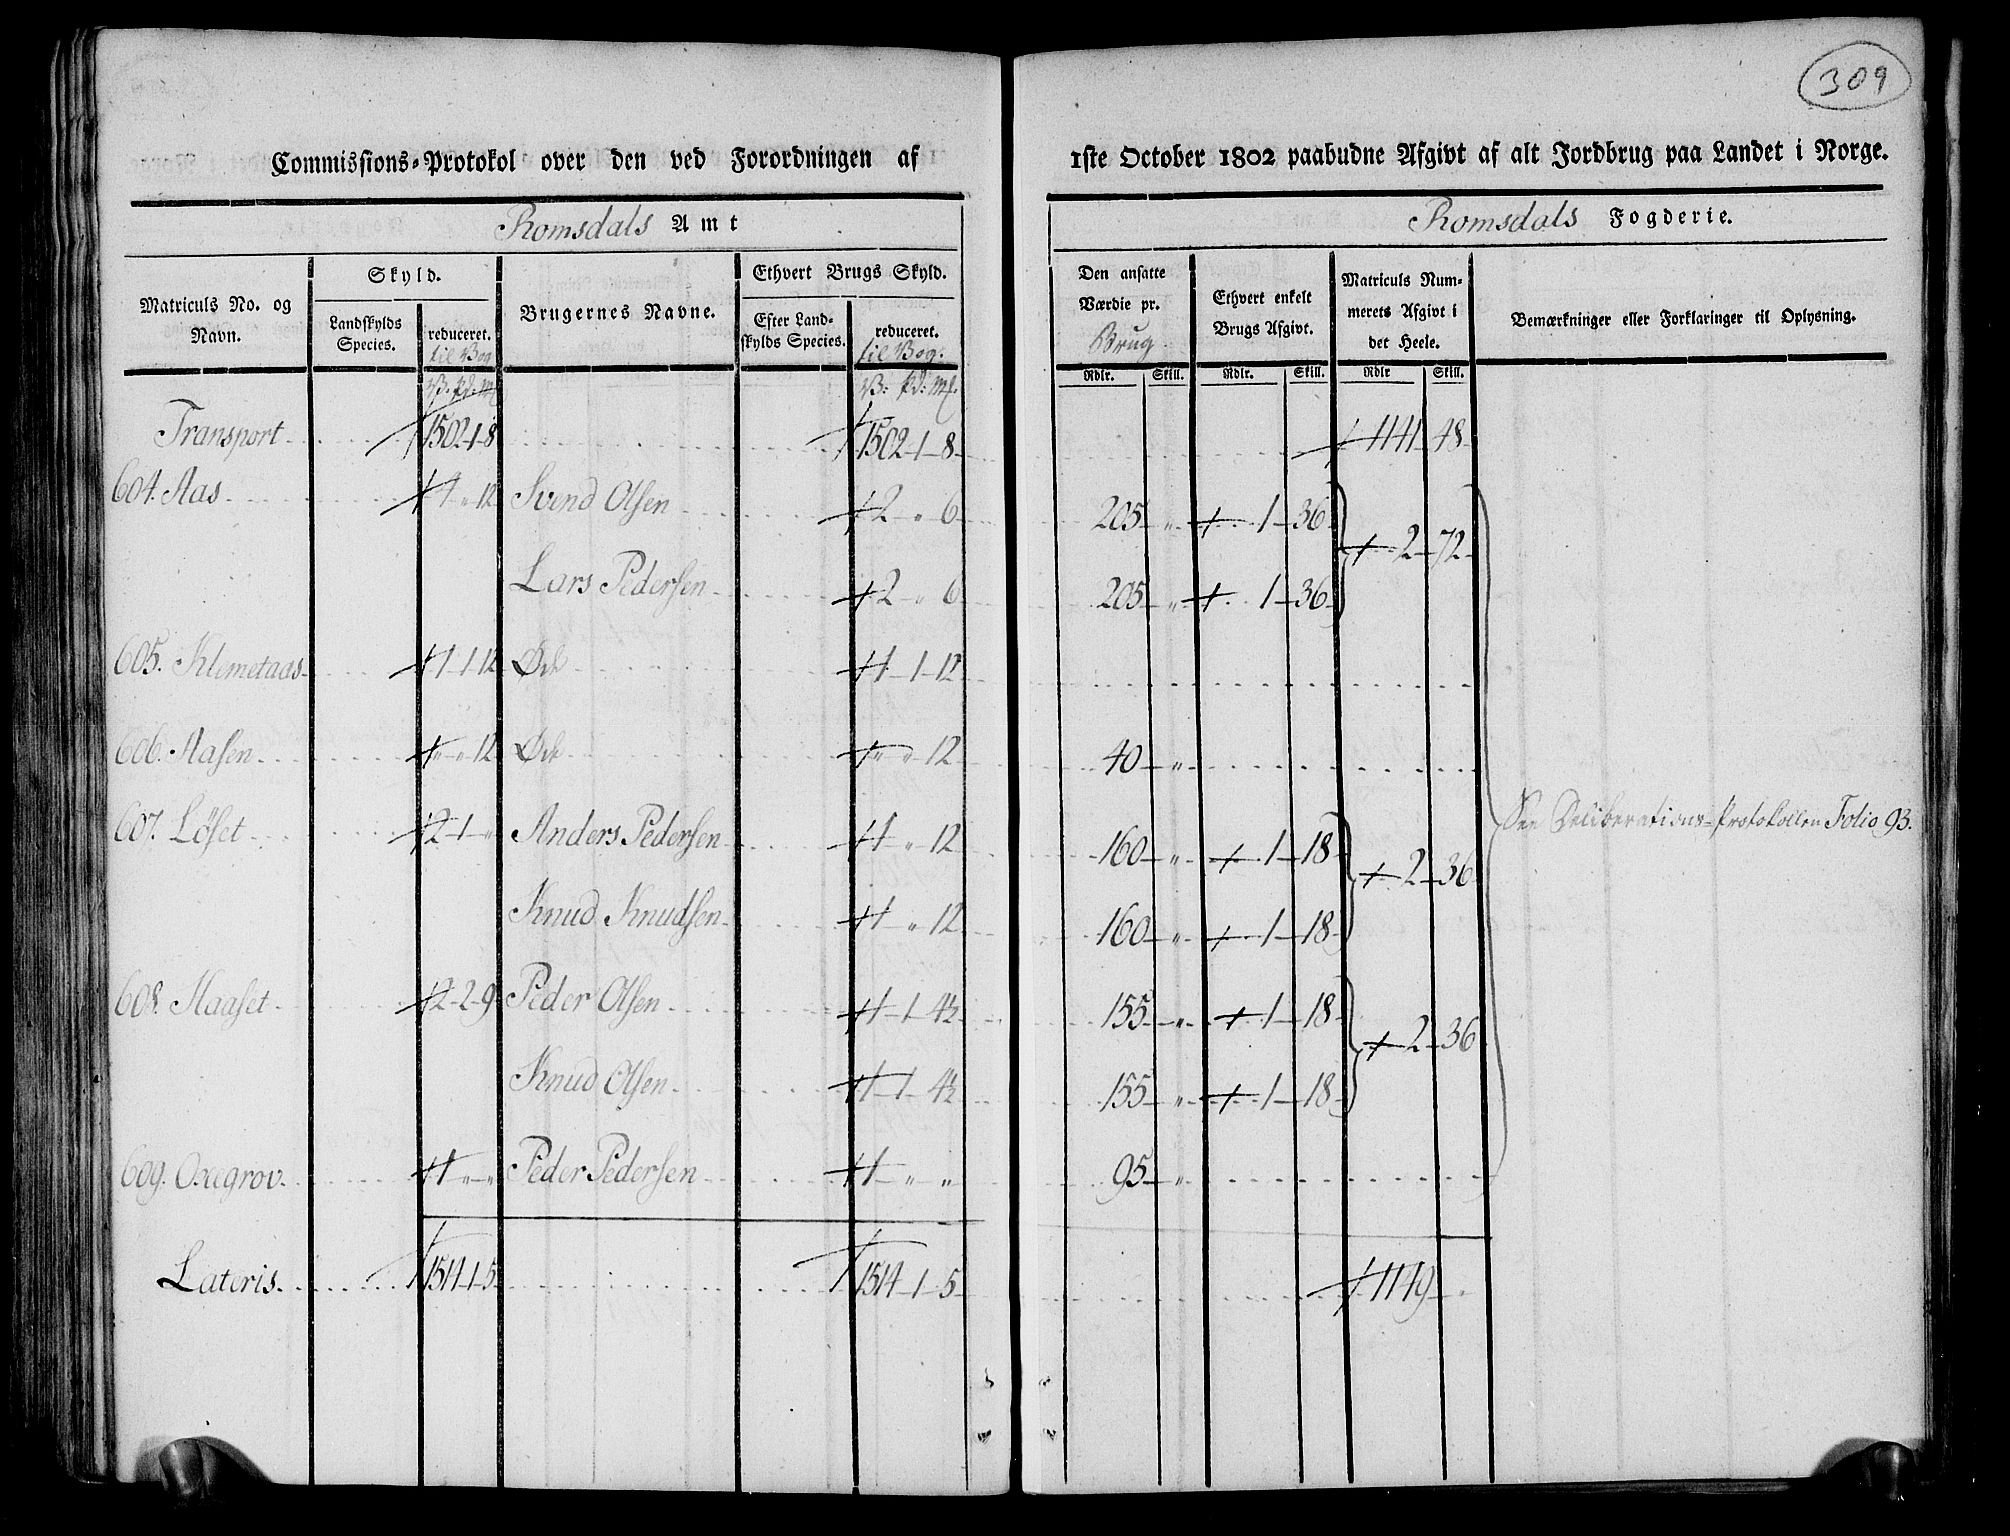 309
Commissions-Protokol over den ved Forordningen af 1ste October 1802 paabudne Afgivt af alt Jordbrug paa Landet i Norge.
Romsdals Amt
Romsdals Fogderie.
Matriculs No. og Navn.
Skyld.
Landskylds Species.
reduceret. til Vog
Brugernes Navne.
Ethvert Brugs Skyld.
Efter Landskylds Species.
reduceret. til Vog.
Den ansatte Værdie pr. Brug
Ethvert enkelt Brugs Afgivt.
Matriculs Nummerets Afgivt i det Heele.
Bemærkninger eller Forklaringer til Oplysning.
V: Pd: Mk V: Pd: Mk. Rdlr. Skill. Rdlr. Skill. Rdlr Skill.
Transport 1502-1-8 1502-1-8 1141 48
604. Aas 4 " 12 Svend Olsen 2 " 6 205 " 1 36
2 72
Lars Pedersen 2 " 6 205 " 1 36
605. Klemetaas 1-1-12 Øde 1-1-12
606. Aasen " " 12 Øde " " 12 40 "
607. Løset 2-1-" Anders Pedersen 1 " 12 160 " 1 18
See Deliberations-Protokollen Folio 93.
2 36
Knud Knudsen 1 " 12 160 " 1 18
608. Haaset 2-2-9 Peder Olsen 1-1-4½ 155 " 1 18
2 36
Knud Olsen 1-1-4½ 155 " 1 18
609. Oxegrov 1 " " Peder Pedersen 1 " " 95 "
Lateris. 1514-1-5 1514-1-5 1149 "